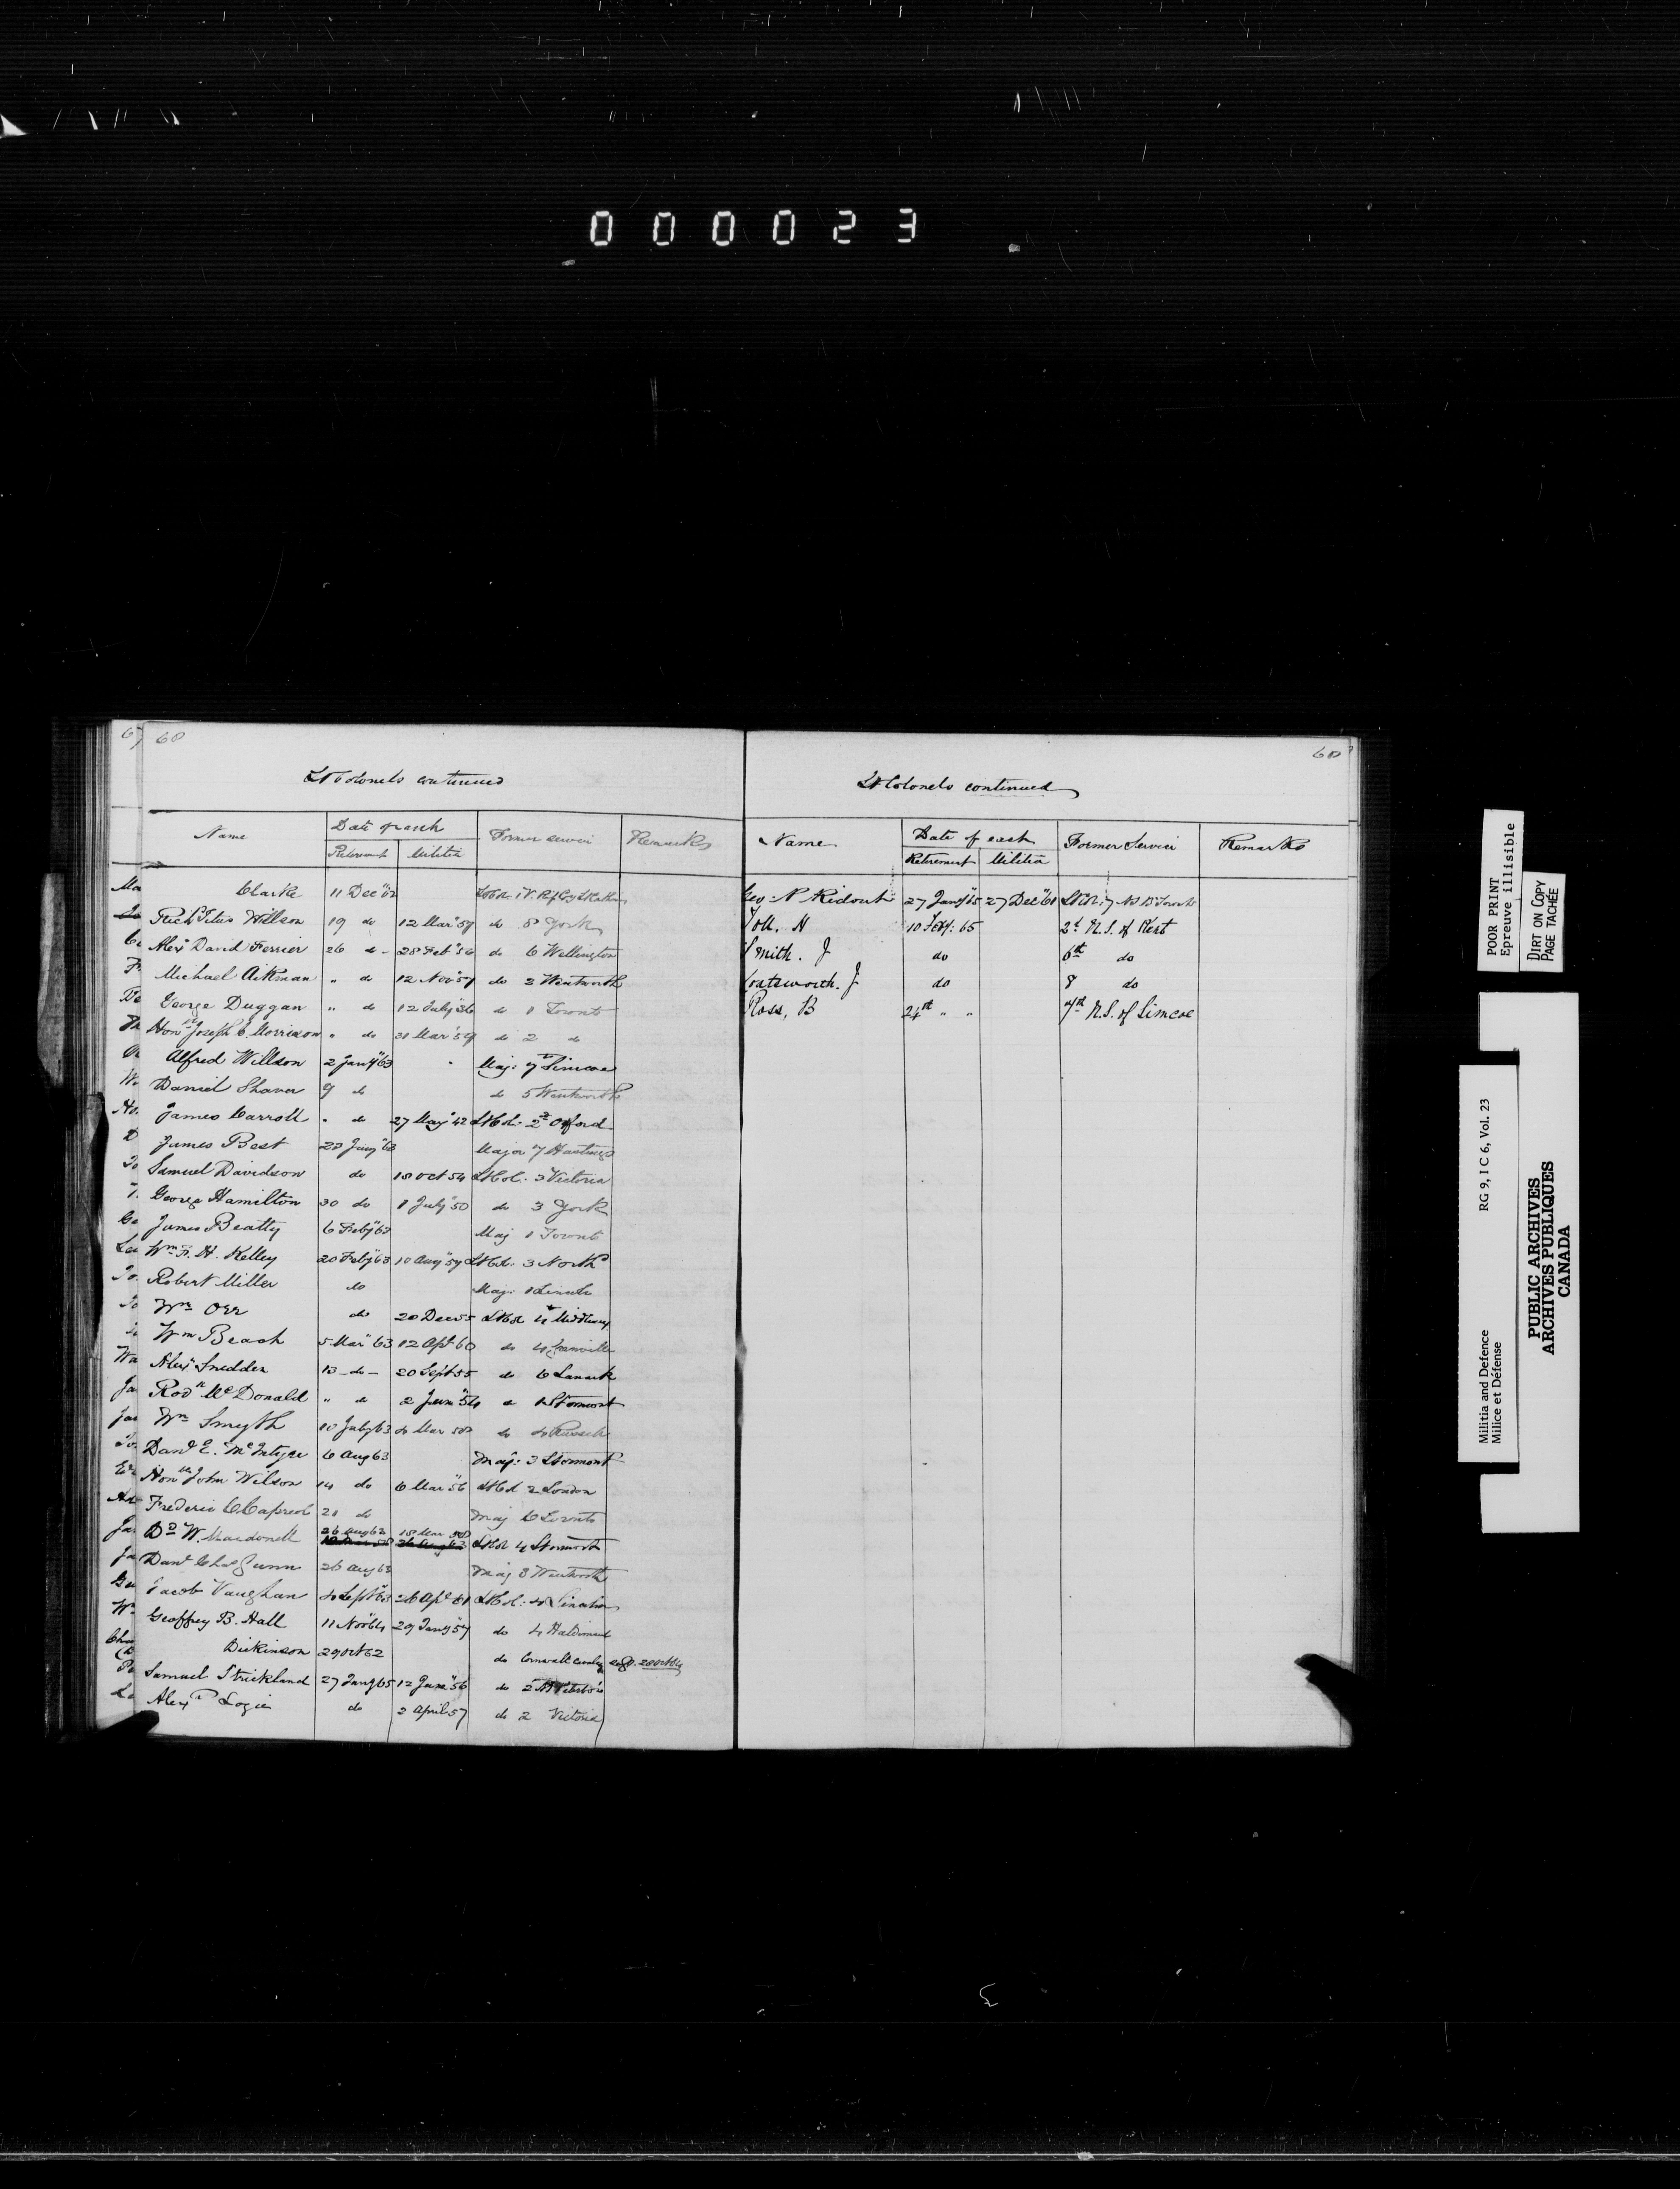 000023
67 60
Lt Colonels continued
Name Date of each Former Service Remarks
Retirement Militia
Clarke 11 Dec "62
Richd Titus Willson 19 do 12 Mar "59 do 8 York
Alexr David Ferrier 26 do - 28 Feb "56 do 6 Wellington
Michael Aikman " do 12 Nov "57 do 2 Wentworth
George Duggan " do 12 July "56 do 1 Toronto
Honble Joseph C. Morrison " do 31 Mar "59 do 2 do
Alfred Willson 2 Jany "63 Maj: 7th Simcoe
Daniel Shaver 9 do do 5 Wentworth
James Carroll " do 27 May "42 Lt Col: 2d Oxford
James Best 23 Jany "63 Major 7 Hastings
Samuel Davidson do 18 Oct 54 Lt Col: 3 Victoria
George Hamilton 30 do 1 July "50 do 3 York
James Beatty 6 Feby "63 Maj 1 Toronto
Wm F. H. Kelley 20 Feby "63 10 Aug "59 Lt Col: 3 North
Robert Miller do Maj:
Wm Orr do 20 Dec 55 Lt Col 4 Middlesex
Wm Beach 5 Mar "63 12 Apl 60 do 4 Grenville
Alexr Snedden 13 - do - 20 Sept 55 do 6 Lanark
Rodk McDonald " do 2 June "54 do 1 Stormont
Wm Smyth 10 July 63 4 Mar 58 do Russell
Danl E. McIntyre 6 Aug 63 Maj: 3 Stormont
Honble John Wilson 14 do 6 Mar "56 Lt Col 2 London
Frederic C Capreol 21 do Maj 6 Toronto
Dd W. Macdonell 26 Aug 63 18 Mar 58 Lt Col 4 Stormont
Danl Chas Gunn 26 Aug 63 Maj 8 Wentworth
Jacob Vaughan 4 Sept "63 26 Apl 61 Lt Col: 4 Lincoln
Geoffrey B. Hall 11 Nov "64 29 Jany "57 do 4 Haldimand
Dickinson 29 Oct 62 do Cornwall Cavalry
Samuel Strickland 27 Jany 65 12 June "56 do 2
Alexr Logie do 2 April 57 do 2 Victoria
60
Lt Colonels continued
Name Date of each Former Service Remarks
Retirement Militia
Geo: P Ridout 27 Jany "65 27 Dec "61 Lt Col: 7 Toronto
Toll. H 10 Feby: 65 2d N.S. of Kent
Smith. J do 6th do
Coatsworth. J do 8 do
Ross, B 24th " " 7th N.S. of Simcoe
POOR PRINT
Epreuve illisible
DIRT ON COPY
PAGE TACHÉE
Militia and Defence RG 9, I C 6, Vol. 23
Milice et Défense
PUBLIC ARCHIVES
ARCHIVES PUBLIQUES
CANADA